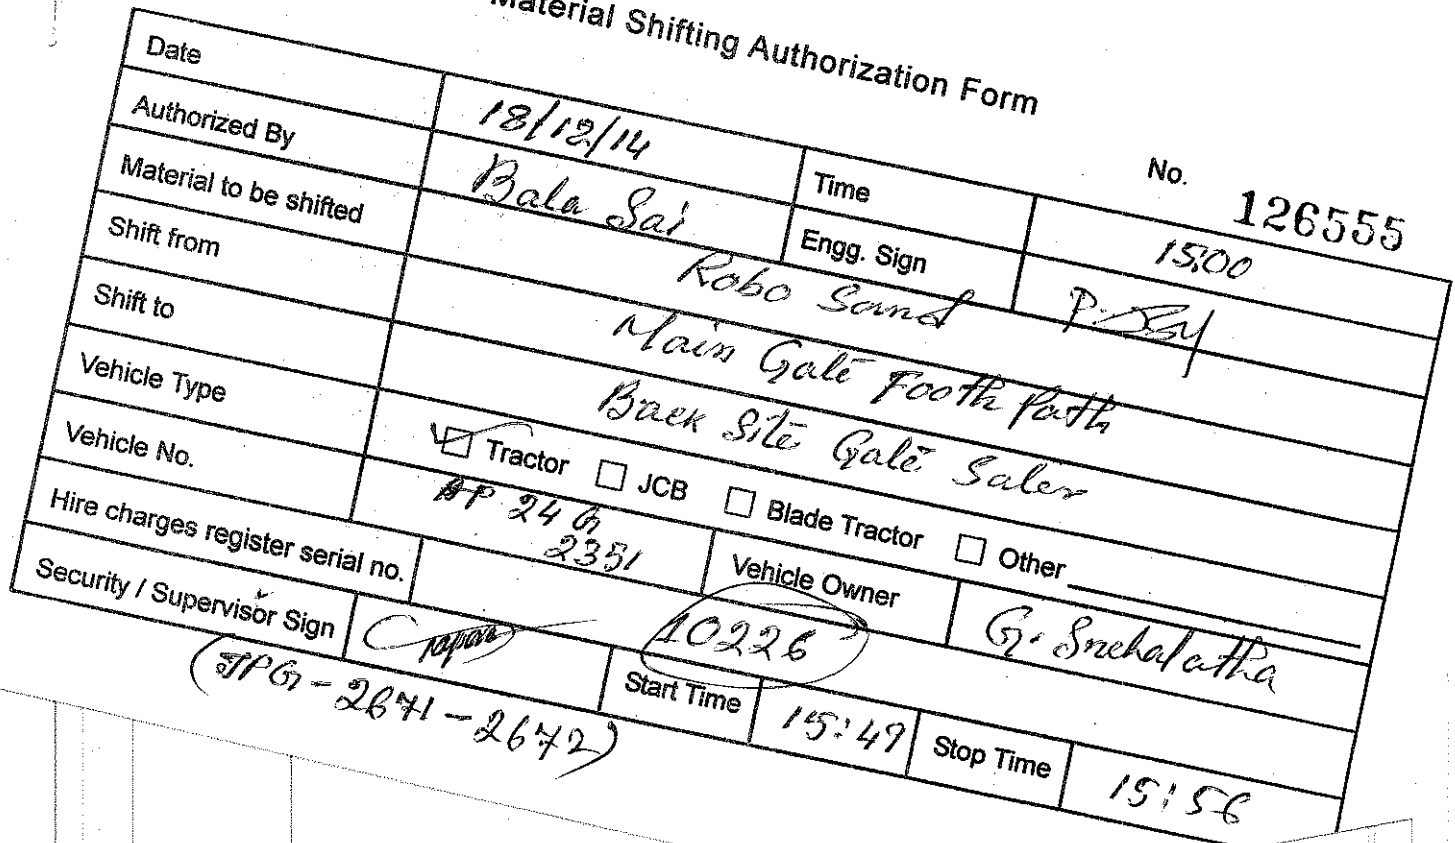 Material Shifting Authorization Form
No. 126555
Date 18/12/14 Time 15:00
Authorized By Bala Sai Engg. Sign
Material to be shifted Robo Sand
Shift from Main Gate Footh Path
Shift to Back Site Gate Saler
Vehicle Type Tractor JCB Blade Tractor Other
Vehicle No. AP 24 G 2351 Vehicle Owner G. Snehalatha
Hire charges register serial no. 10226
Security / Supervisor Sign Start Time 15:49 Stop Time 15:56
(JPG-2671-2672)